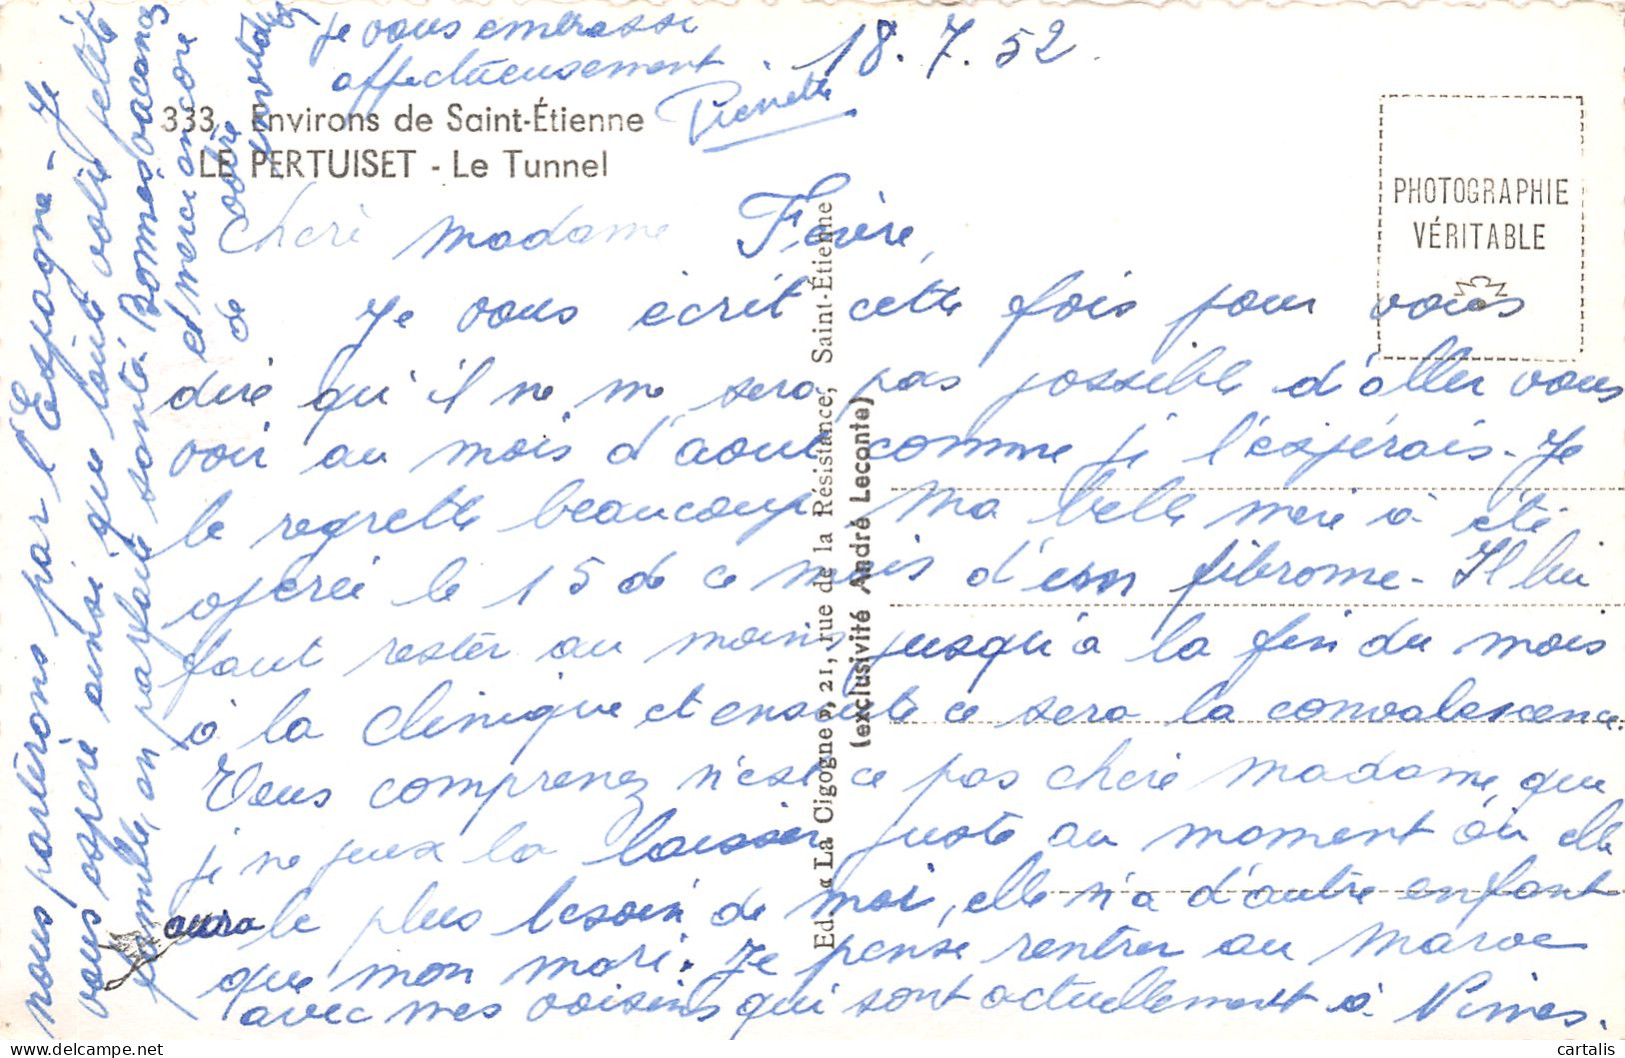 18.7.52
333. Environs de Saint-Étienne
LE PERTUISET - Le Tunnel
PHOTOGRAPHIE
VÉRITABLE
Ed. « La Cigogne », 21, rue de la Résistance, Saint-Étienne
(exclusivité André Leconte)
Cheré madame
Je vous écrit cette fois pour vous
diré qu'il ne me sera pas possible d'aller vous
voir au mois d'aout comme je l'espérais. Je
le regrette beaucoup Ma belle mère à été
operée le 15 de ce mois d'un fibrome. Il lui
faut rester au moins jusqu'à la fin du mois
à la clinique et ensuite ce sera la convalescence.
Vous comprenez n'est ce pas cheré madame, que
je ne peux la laisser juste au moment où elle
aura le plus besoin de moi, elle n'a d'autre enfant
que mon mari. Je pense rentrer au Maroc
avec mes voisins qui sont actuellement à Nimes.
nous partirons par l'Espagne - Je
vous espère ainsi que toute votre petite
famille, en parfaite santé. Bonnes vacances
et merci encore
de votre
je vous embrasse
affectueusement.
Pierrette